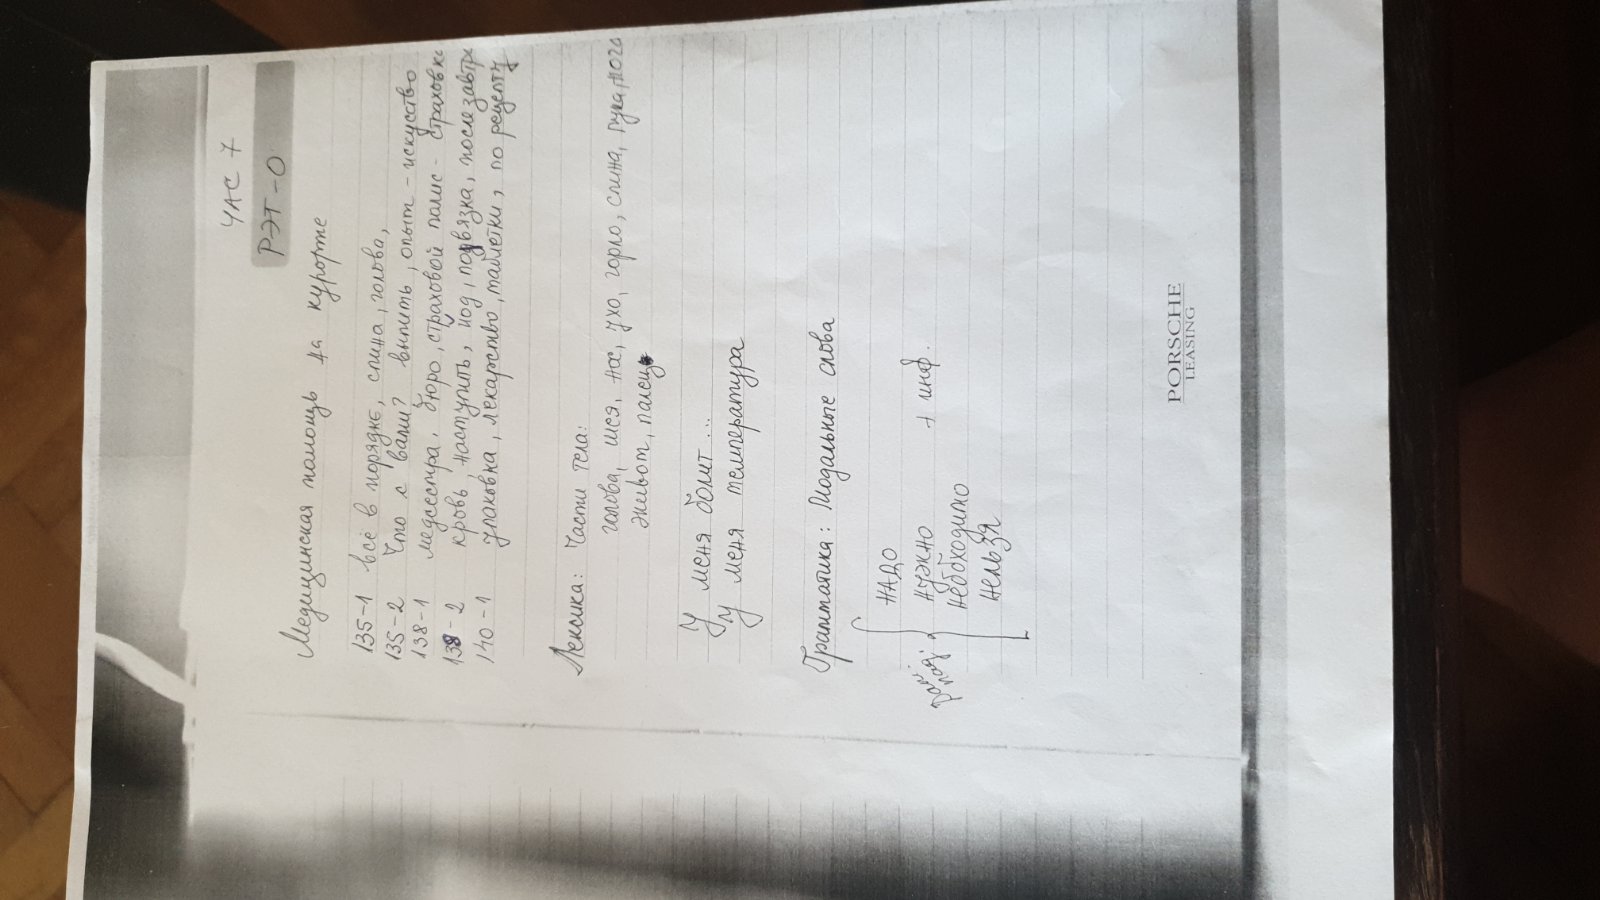 ЧАС 7
РЭТ-О
Медицинская помощь на курорте
135-1 всё в порядке, спина, голова,
135-2 Что с вами? выпить, опыт - искуство
138-1 медсестра, бюро, страховой полис - страховка
138-2 кровь, наступить, иод, повязка, послезавтра
140-1 упаковка, лекарство, таблетки, по рецепту
Лексика: Части тела:
голова, шея, нос, ухо, горло, спина, рука, нога
живот, палец
У меня болит...
У меня температура
Грамматика: Модальные слова
НАДО
нужно + инф.
необходимо
нельзя
PORSCHE
LEASING